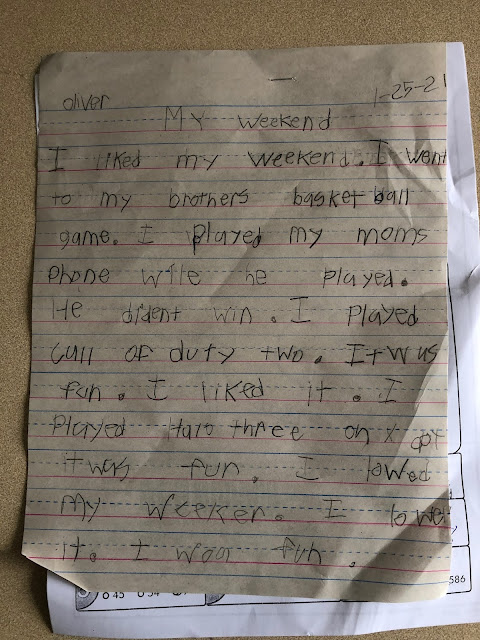 oliver 1-25-21
My weekend
I liked my weekend. I went
to my brothers basket ball
game. I played my moms
phone wile he played.
He dident win. I played
cull of duty two. It wus
fun. I liked it. I
played Halo three on x
it was fun. I lowed
my weeker. I lowe
it. I fun.
586